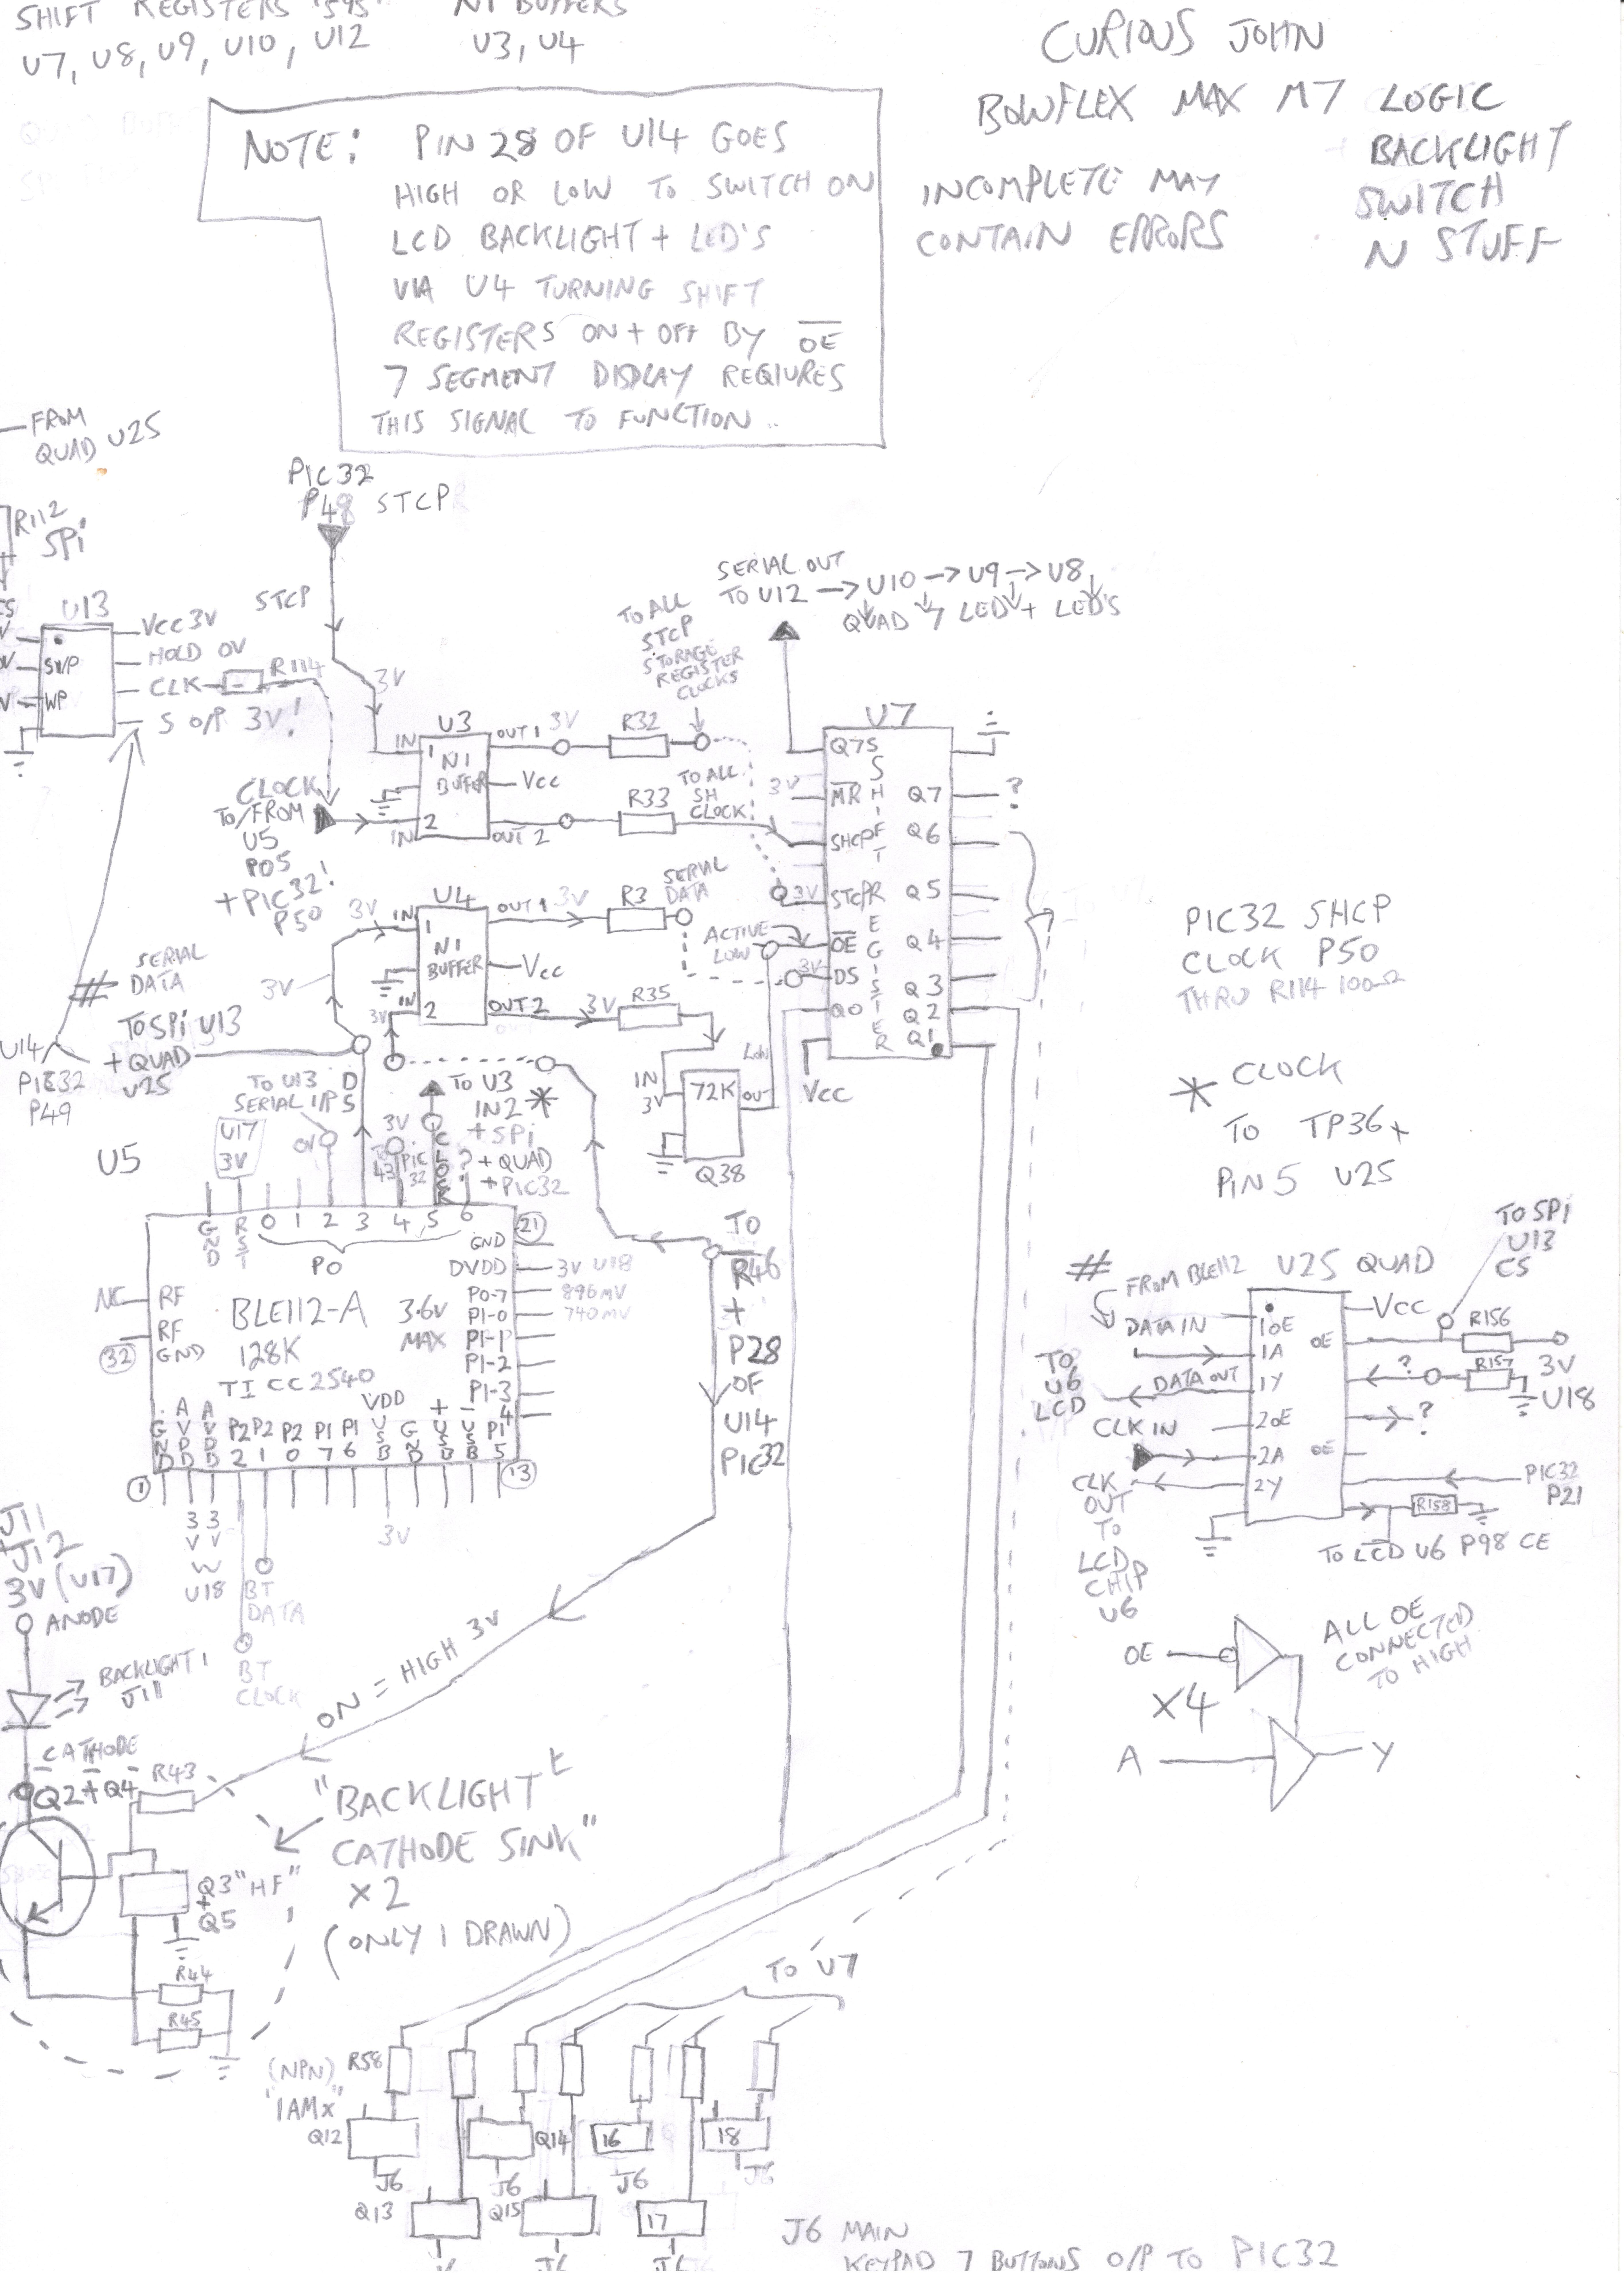 SHIFT REGISTERS '595'
N1 BUFFERS
U7, U8, U9, U10, U12
U3, U4
CURIOUS JOHN
BOWFLEX MAX M7 LOGIC
BACKLIGHT
SWITCH
N STUFF
INCOMPLETE MAY
CONTAIN ERRORS
NOTE: PIN 28 OF U14 GOES
HIGH OR LOW TO SWITCH ON
LCD BACKLIGHT + LED'S
VIA U4 TURNING SHIFT
REGISTERS ON + OFF BY OE
7 SEGMENT DISPLAY REQIURES
THIS SIGNAL TO FUNCTION..
FROM
QUAD U25
R112
SPi
PIC32
P48 STCP
STCP
3V
U13
SWP
WP
VCC 3V
HOLD 0V
CLK
R114
S O/P 3V!
CLOCK
TO/FROM
U5
P05
+ PIC32!
P50
U3
IN
1
N1
BUFFER
2
IN
OUT 1 3V
Vcc
OUT 2
R32
R33
TO ALL
STCP
STORAGE
REGISTER
CLOCKS
TO ALL
SH
CLOCK
SERIAL OUT
TO U12 → U10 → U9 → U8
QUAD 7 LED + LED'S
U7
Q7S
MR
SHCP
STCP
OE
DS
Q0
SHIFT REGISTER
Q7
Q6
Q5
Q4
Q3
Q2
Q1
?
?
3V
3V
3V
Vcc
U4
3V
IN
1
N1
BUFFER
2
IN
3V
OUT 1 3V
Vcc
OUT 2
3V
R3
R35
SERIAL
DATA
ACTIVE
LOW
LOW
IN
3V
72K
OUT
Q38
# SERIAL
DATA
3V
TO SPi U13
+ QUAD
U25
U14
PIC32
P49
PIC32 SHCP
CLOCK P50
THRU R114 100Ω
* CLOCK
TO TP36 +
PIN 5 U25
U5
U17
3V
TO U13
SERIAL I/P
0V
DS
3V
TO
43
PIC
32
CLOCK
?
TO U3
IN2 *
+ SPi
+ QUAD
+ PIC32
GND
RST
0 1 2 3 4 5 6
P0
21
GND
DVDD
3V U18
P0-7
896mV
P1-0
740mV
P1-1
P1-2
P1-3
4
NC
RF
RF
GND
32
BLE112-A
128K
TI CC2540
3.6V
MAX
GND
AVDD
AVDD
P2 2
P2 1
P2 0
P1 7
P1 6
VDD USB
GND
+ USB
- USB
P1 5
1
13
3V
3V
U18
3V
BT
DATA
BT
CLOCK
TO
R46
+
P28
OF
U14
PIC32
ON = HIGH 3V
J11
+ J12
3V (U17)
ANODE
BACKLIGHT 1
J11
CATHODE
Q2 + Q4
R43
Q3 "HF"
+
Q5
R44
R45
"BACKLIGHT
CATHODE SINK"
X 2
(ONLY 1 DRAWN)
# FROM BLE112
U25 QUAD
TO SPI
U13
CS
DATA IN
1OE
1A
1Y
2OE
2A
2Y
OE
OE
Vcc
R156
3V
U18
?
R157
?
TO
U6
LCD
DATA OUT
CLK IN
CLK
OUT
TO
LCD
CHIP
U6
PIC32
P21
R158
TO LCD U6 P98 CE
OE
X4
A
Y
ALL OE
CONNECTED
TO HIGH
TO U7
(NPN)
"1AMx"
R58
Q12
Q14
16
18
J6
J6
J6
J6
Q13
Q15
17
J6
J6
J6 MAIN
KEYPAD 7 BUTTONS O/P TO PIC32